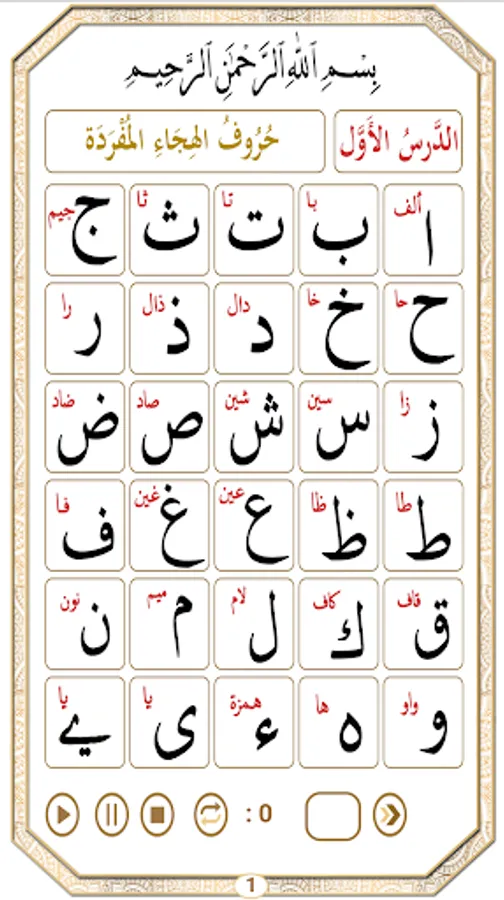 بِسْمِ اللهِ الرَّحْمٰنِ الرَّحِيمِ
الدَّرسُ الأَوَّل حُرُوفُ الهِجَاءِ المُفْرَدَة
ألف ا با ب تا ت ثا ث جيم ج
حا ح خا خ دال د ذال ذ را ر
زا ز سين س شين ش صاد ص ضاد ض
طا ط ظا ظ عين ع غين غ فا ف
قاف ق كاف ك لام ل ميم م نون ن
واو و ها ه همزة ء يا ى يا ے
: 0
1